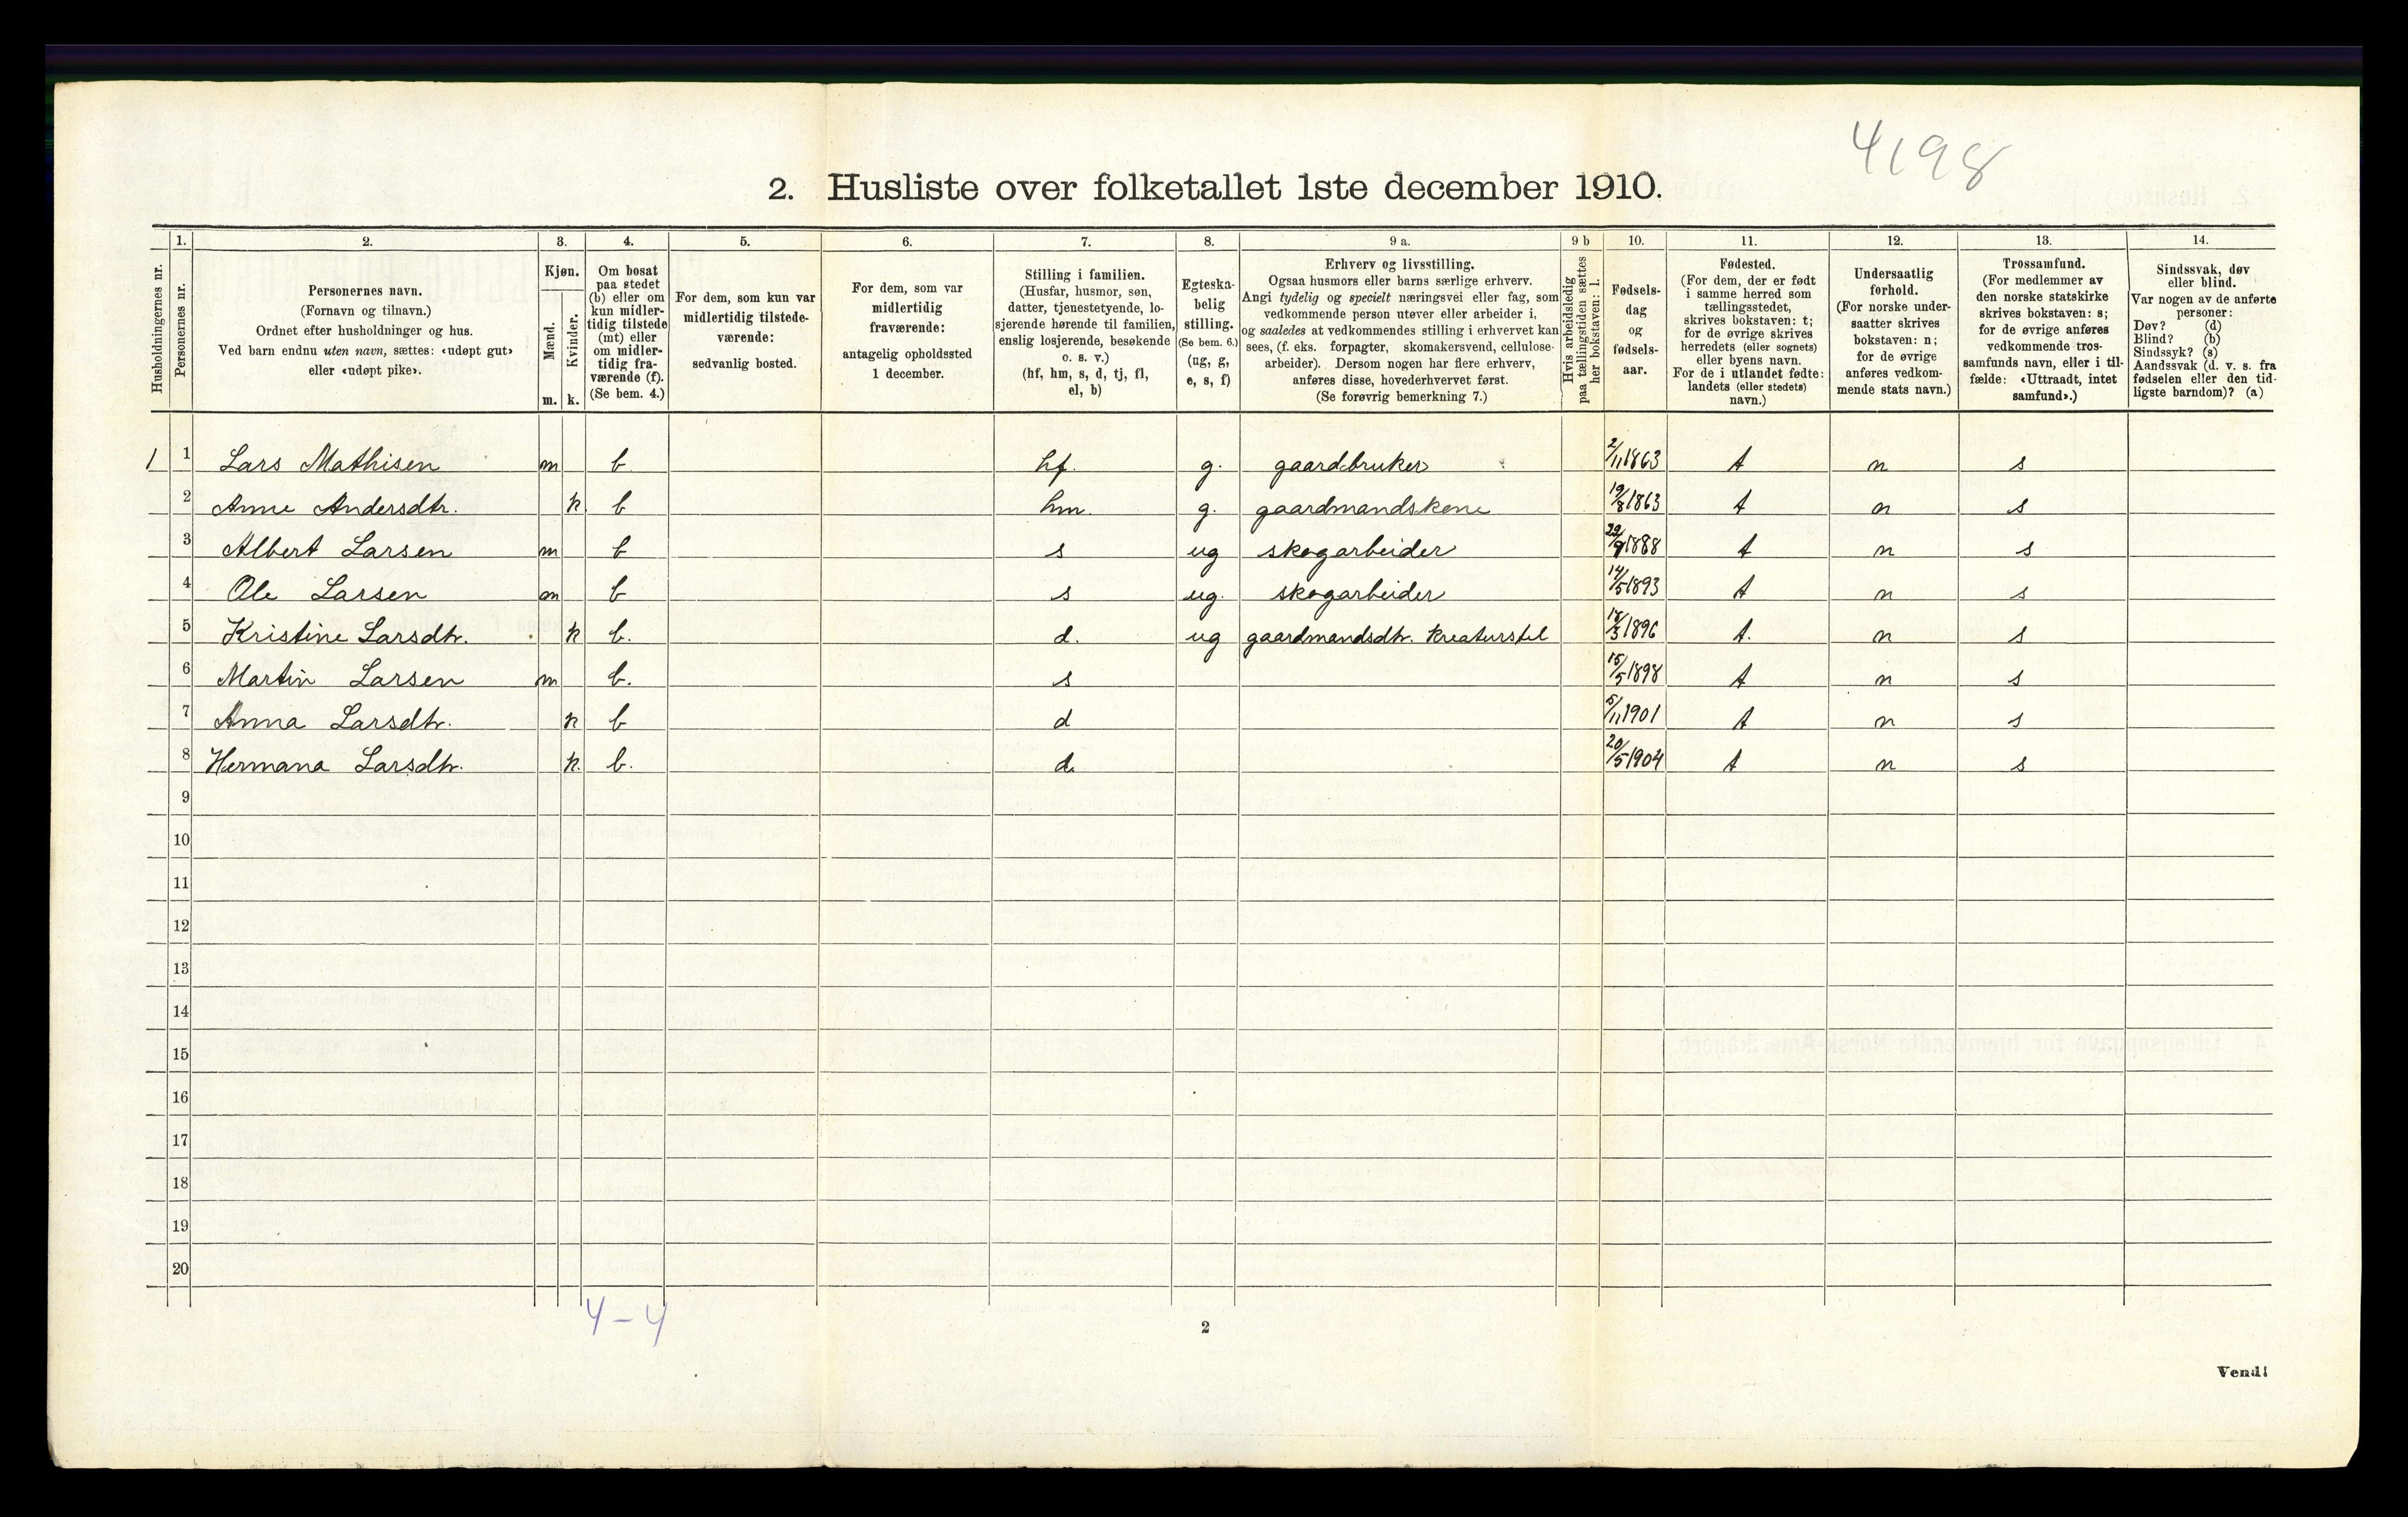 4198
2. Husliste over folketallet 1ste december 1910.
Husholdningernes nr.
1.
Personernes nr.
2.
Personernes navn.
(Fornavn og tilnavn.)
Ordnet efter husholdninger og hus.
Ved barn endnu uten navn, sættes: «udøpt gut»
eller «udøpt pike».
3.
Kjøn.
Mænd.
Kvinder.
m. k.
4.
Om bosat
paa stedet
(b) eller om
kun midler-
tidig tilstede
(mt) eller
om midler-
tidig fra-
værende (f).
(Se bem. 4.)
5.
For dem, som kun var
midlertidig tilstede-
værende:
sedvanlig bosted.
6.
For dem, som var
midlertidig
fraværende:
antagelig opholdssted
1 december.
7.
Stilling i familien.
(Husfar, husmor, søn,
datter, tjenestetyende, lo-
sjerende hørende til familien,
enslig losjerende, besøkende
o. s. v.)
(hf, hm, s, d, tj, fl,
el, b)
8.
Egteska-
belig
stilling.
(Se bem. 6.)
(ug, g,
e, s, f)
9 a.
Erhverv og livsstilling.
Ogsaa husmors eller barns særlige erhverv.
Angi tydelig og specielt næringsvei eller fag, som
vedkommende person utøver eller arbeider i,
og saaledes at vedkommendes stilling i erhvervet kan
sees, (f. eks. forpagter, skomakersvend, cellulose-
arbeider). Dersom nogen har flere erhverv,
anføres disse, hovederhvervet først.
(Se forøvrig bemerkning 7.)
9 b
Hvis arbeidsledig
paa tællingstiden sættes
her bokstaven: l.
10.
Fødsels-
dag
og
fødsels-
aar.
11.
Fødested.
(For dem, der er født
i samme herred som
tællingsstedet,
skrives bokstaven: t;
for de øvrige skrives
herredets (eller sognets)
eller byens navn.
For de i utlandet fødte:
landets (eller stedets)
navn.)
12.
Undersaatlig
forhold.
(For norske under-
saatter skrives
bokstaven: n;
for de øvrige
anføres vedkom-
mende stats navn.)
13.
Trossamfund.
(For medlemmer av
den norske statskirke
skrives bokstaven: s;
for de øvrige anføres
vedkommende tros-
samfunds navn, eller i til-
fælde: «Uttraadt, intet
samfund».)
14.
Sindssvak, døv
eller blind.
Var nogen av de anførte
personer:
Døv? (d)
Blind? (b)
Sindssyk? (s)
Aandssvak (d. v. s. fra
fødselen eller den tid-
ligste barndom)? (a)
1 1 Lars Mathisen m b hf. g. gaardbruker 2/11 1863 t n s
2 Anne Andersdtr. k. b hm. g. gaardmandskone 19/8 1863 t n s
3 Albert Larsen m b s ug skogarbeider 22/9 1888 t n s
4 Ole Larsen m b s ug. skogarbeider 14/5 1893 t n s
5 Kristine Larsdtr. k b. d. ug gaardmandsdtr. kreaturstel 18/3 1896 t. n s
6 Martin Larsen m b. s 15/5 1898 t n s
7 Anna Larsdtr. k b d 5/11 1901 t n s
8 Hermana Larsdtr. k. b. d. 20/5 1904 t n s
9
10
11
12
13
14
15
16
17
18
19
20
4 - 4
2
Vend!